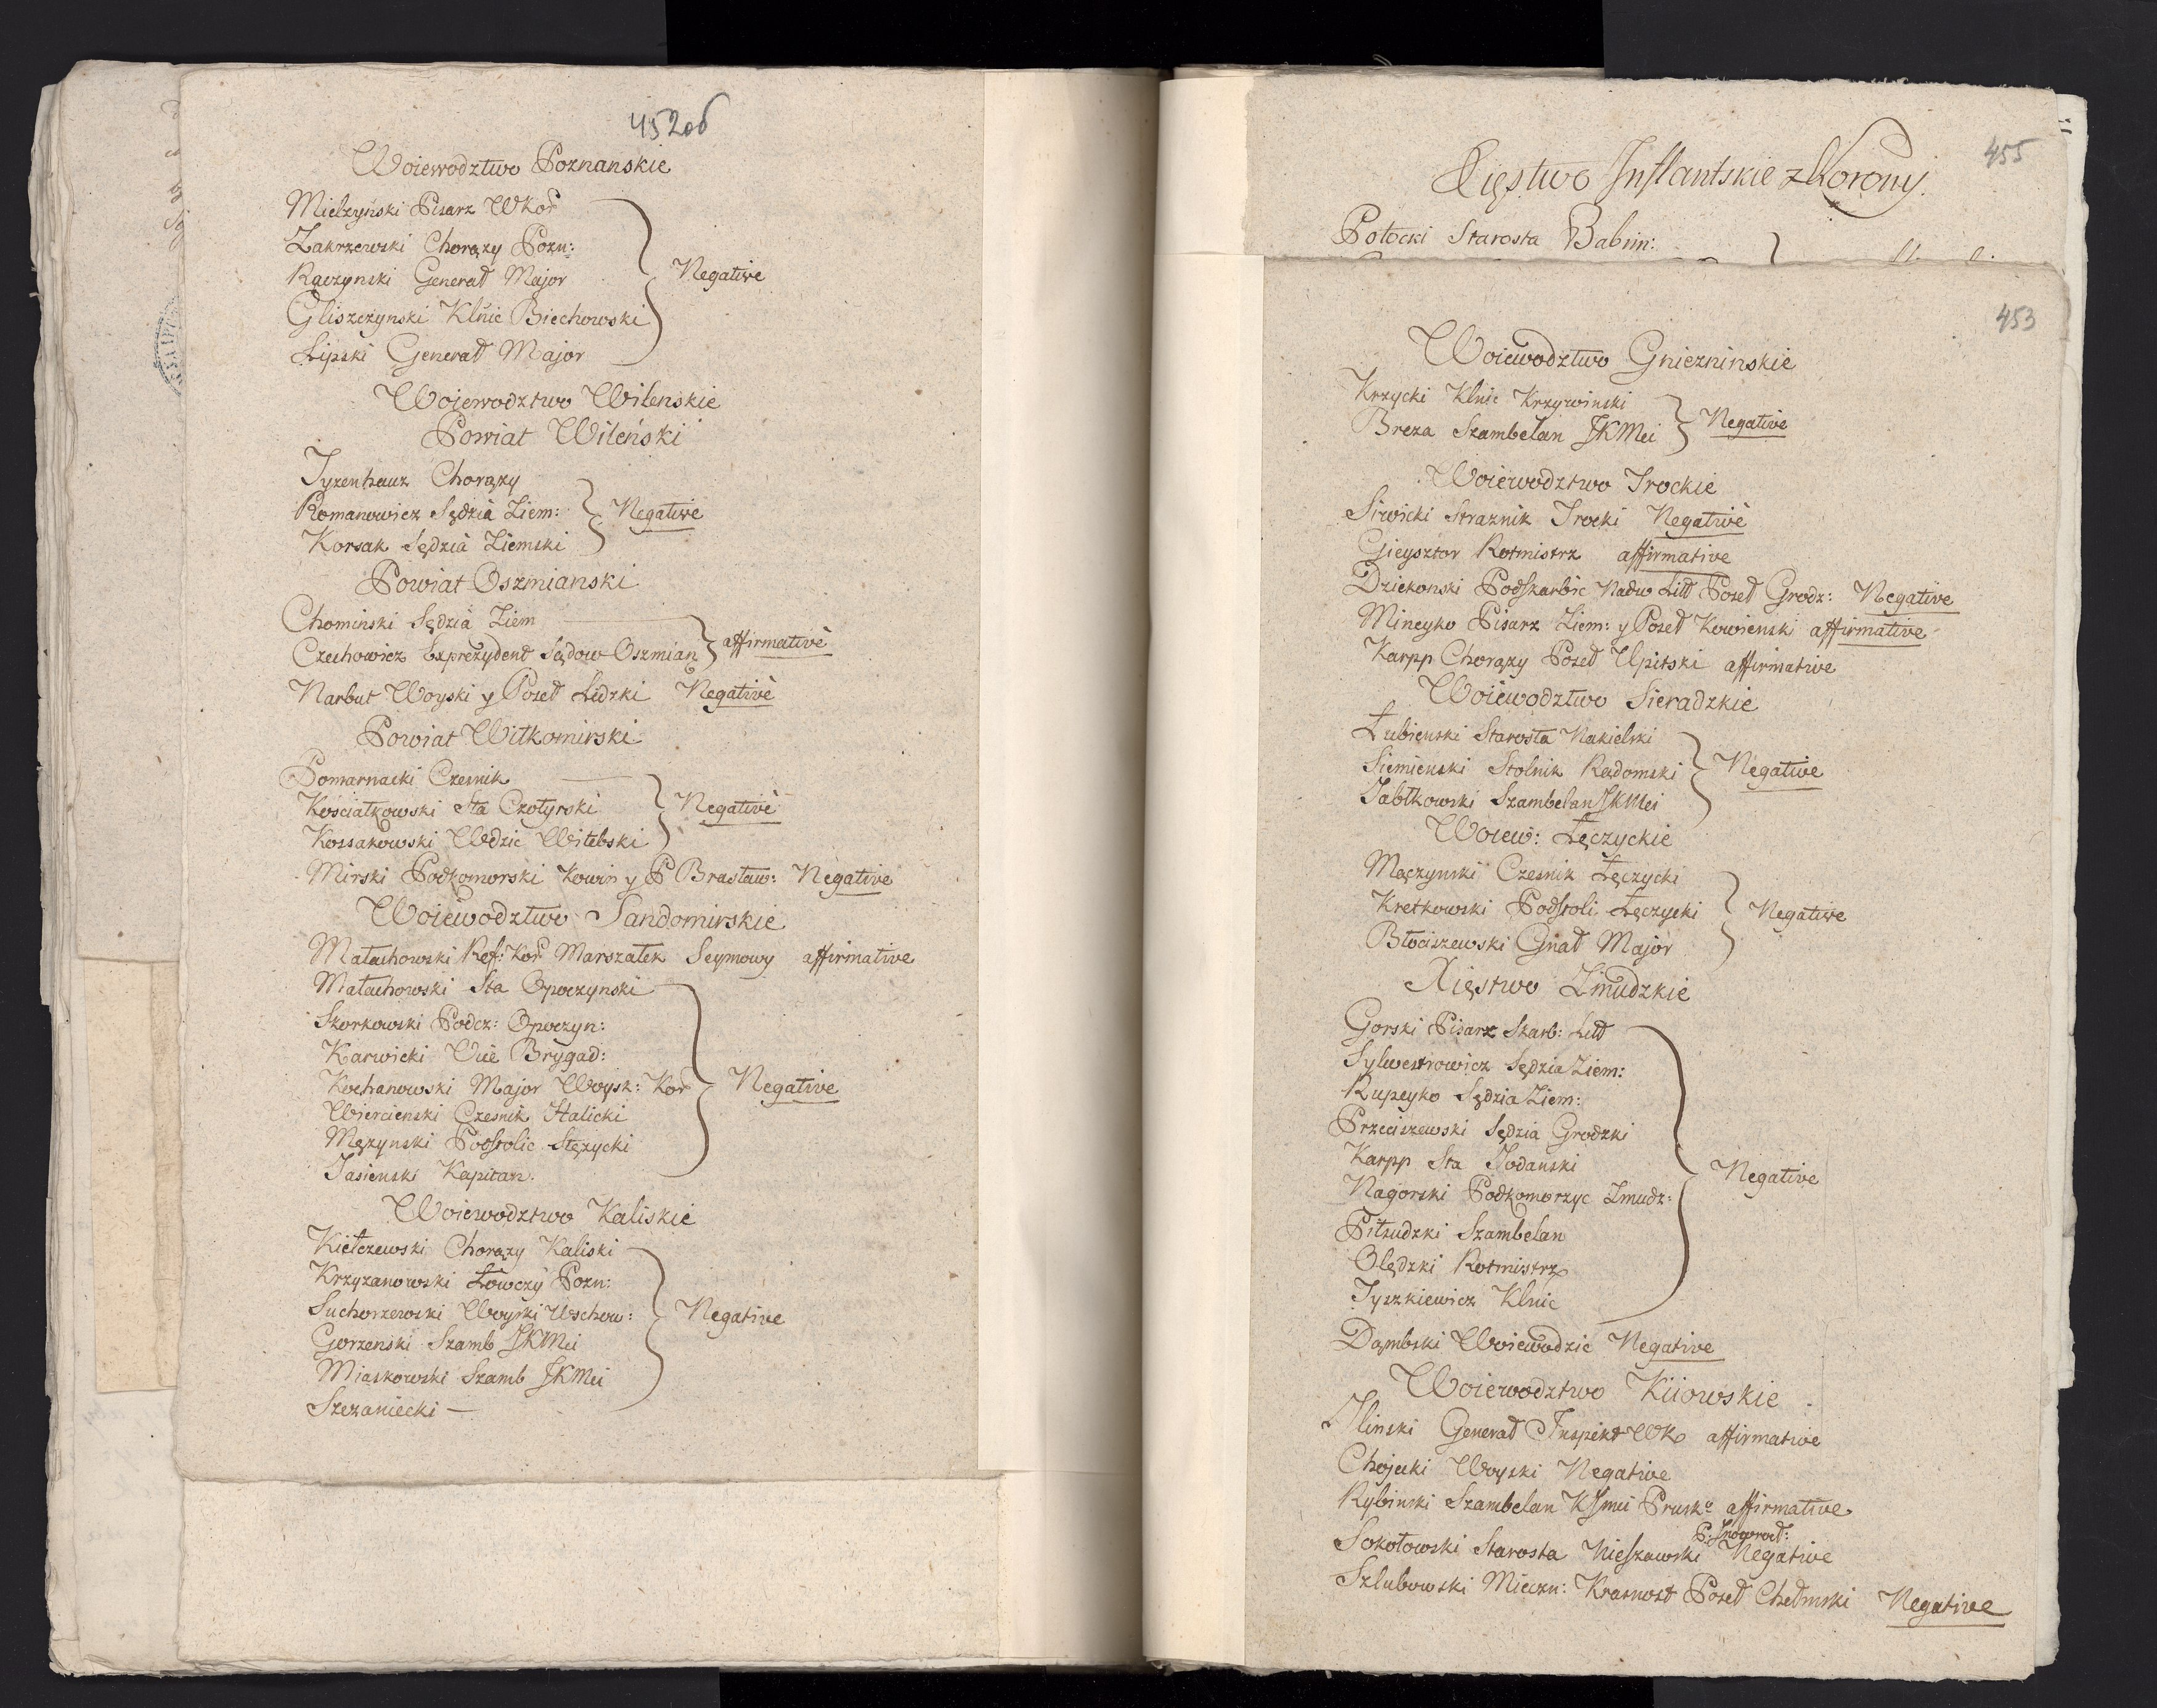 452об
Woiewodztwo Poznanskie
Mielzyński Pisarz WKor
Zakrzewski Chorązy Pozn:
Raczynski Generał Major
Gliszczynski Klnic Biechowski
Negative
Lipski Generał Major
Woiewodztwo Wilenskie
Powiat Wileński
Tyzenhauz Chorązy
Romanowicz Sędzia Ziem:
Negative
Korsak Sędzia Ziemski
Powiat Oszmianski
Chominski Sędzia Ziem
Czechowicz Exprezydent Sądow Oszmian
affirmative
Narbut Woyski y Poseł Lidzki Negative
Powiat Wiłkomirski
Pomarnacki Czesnik
Kościałkowski Sta Czotyrski
Negative
Kossakowski Wdzic Witebski
Mirski Podkomorski Kowin y P Brasław: Negative
Woiewodztwo Sandomirskie
Małachowski Ref: Kor Marszałek Seymowy affirmative
Małachowski Sta Opoczynski
Skorkowski Podcz: Opoczyn:
Karwicki Vice Brygad:
Kochanowski Major Woysk: Kor
Negative
Wiercienski Czesnik Halicki
Męzynski Podstolic Stęzycki
Jasienski Kapitan.
Woiewodztwo Kaliskie
Kiełczewski Chorązy Kaliski
Krzyzanowski Łowczy Pozn:
Suchorzewski Woyski Wschow:
Negative
Gorzenski Szamb JKMci
Miaskowski Szamb JKMci
Szczaniecki —
455
Xięstwo Inflantskie z Korony.
Potocki Starosta Babim:
453
Woiewodztwo Gniezninskie
Krzycki Klnic Krzywinski
Breza Szambelan JKMci
Negative
Woiewodztwo Trockie
Siwicki Straznik Trocki Negative
Gieysztor Rotmistrz affirmative
Dziekonski Podskarbic Nadw Litt Poseł Grodz: Negative
Mineyko Pisarz Ziem: y Poseł Kowienski affirmative
Karpp Chorązy Poseł Upitski affirmative
Woiewodztwo Sieradzkie
Łubienski Starosta Nakielski
Siemienski Stolnik Radomski
Negative
Jabłkowski Szambelan JKMci
Woiew: Łęczyckie
Mączynski Czesnik Łęczycki
Kretkowski Podstoli Łęczycki
Negative
Błociszewski Gnał Major
Xięstwo Zmudzkie
Gorski Pisarz Skarb: Litt
Sylwestrowicz Sędzia Ziem:
Rupeyko Sędzia Ziem:
Przeciszewski Sędzia Grodzki
Karpp Sta Jodanski
Negative
Nagorski Podkomorzyc Zmudz:
Piłsudzki Szambelan
Olędzki Rotmistrz
Tyszkiewicz Klnic
Dąmbski Woiewodzic Negative
Woiewodztwo Kiiowskie
Ilinski Generał Inspekt WK affirmative
Chojecki Woyski Negative
Rybinski Szambelan KJmci Prusko affirmative
P: Inowrocł:
Sokołowski Starosta Nieszawski Negative
Szlubowski Mieczn: Krasnost Poseł Chełmski Negative